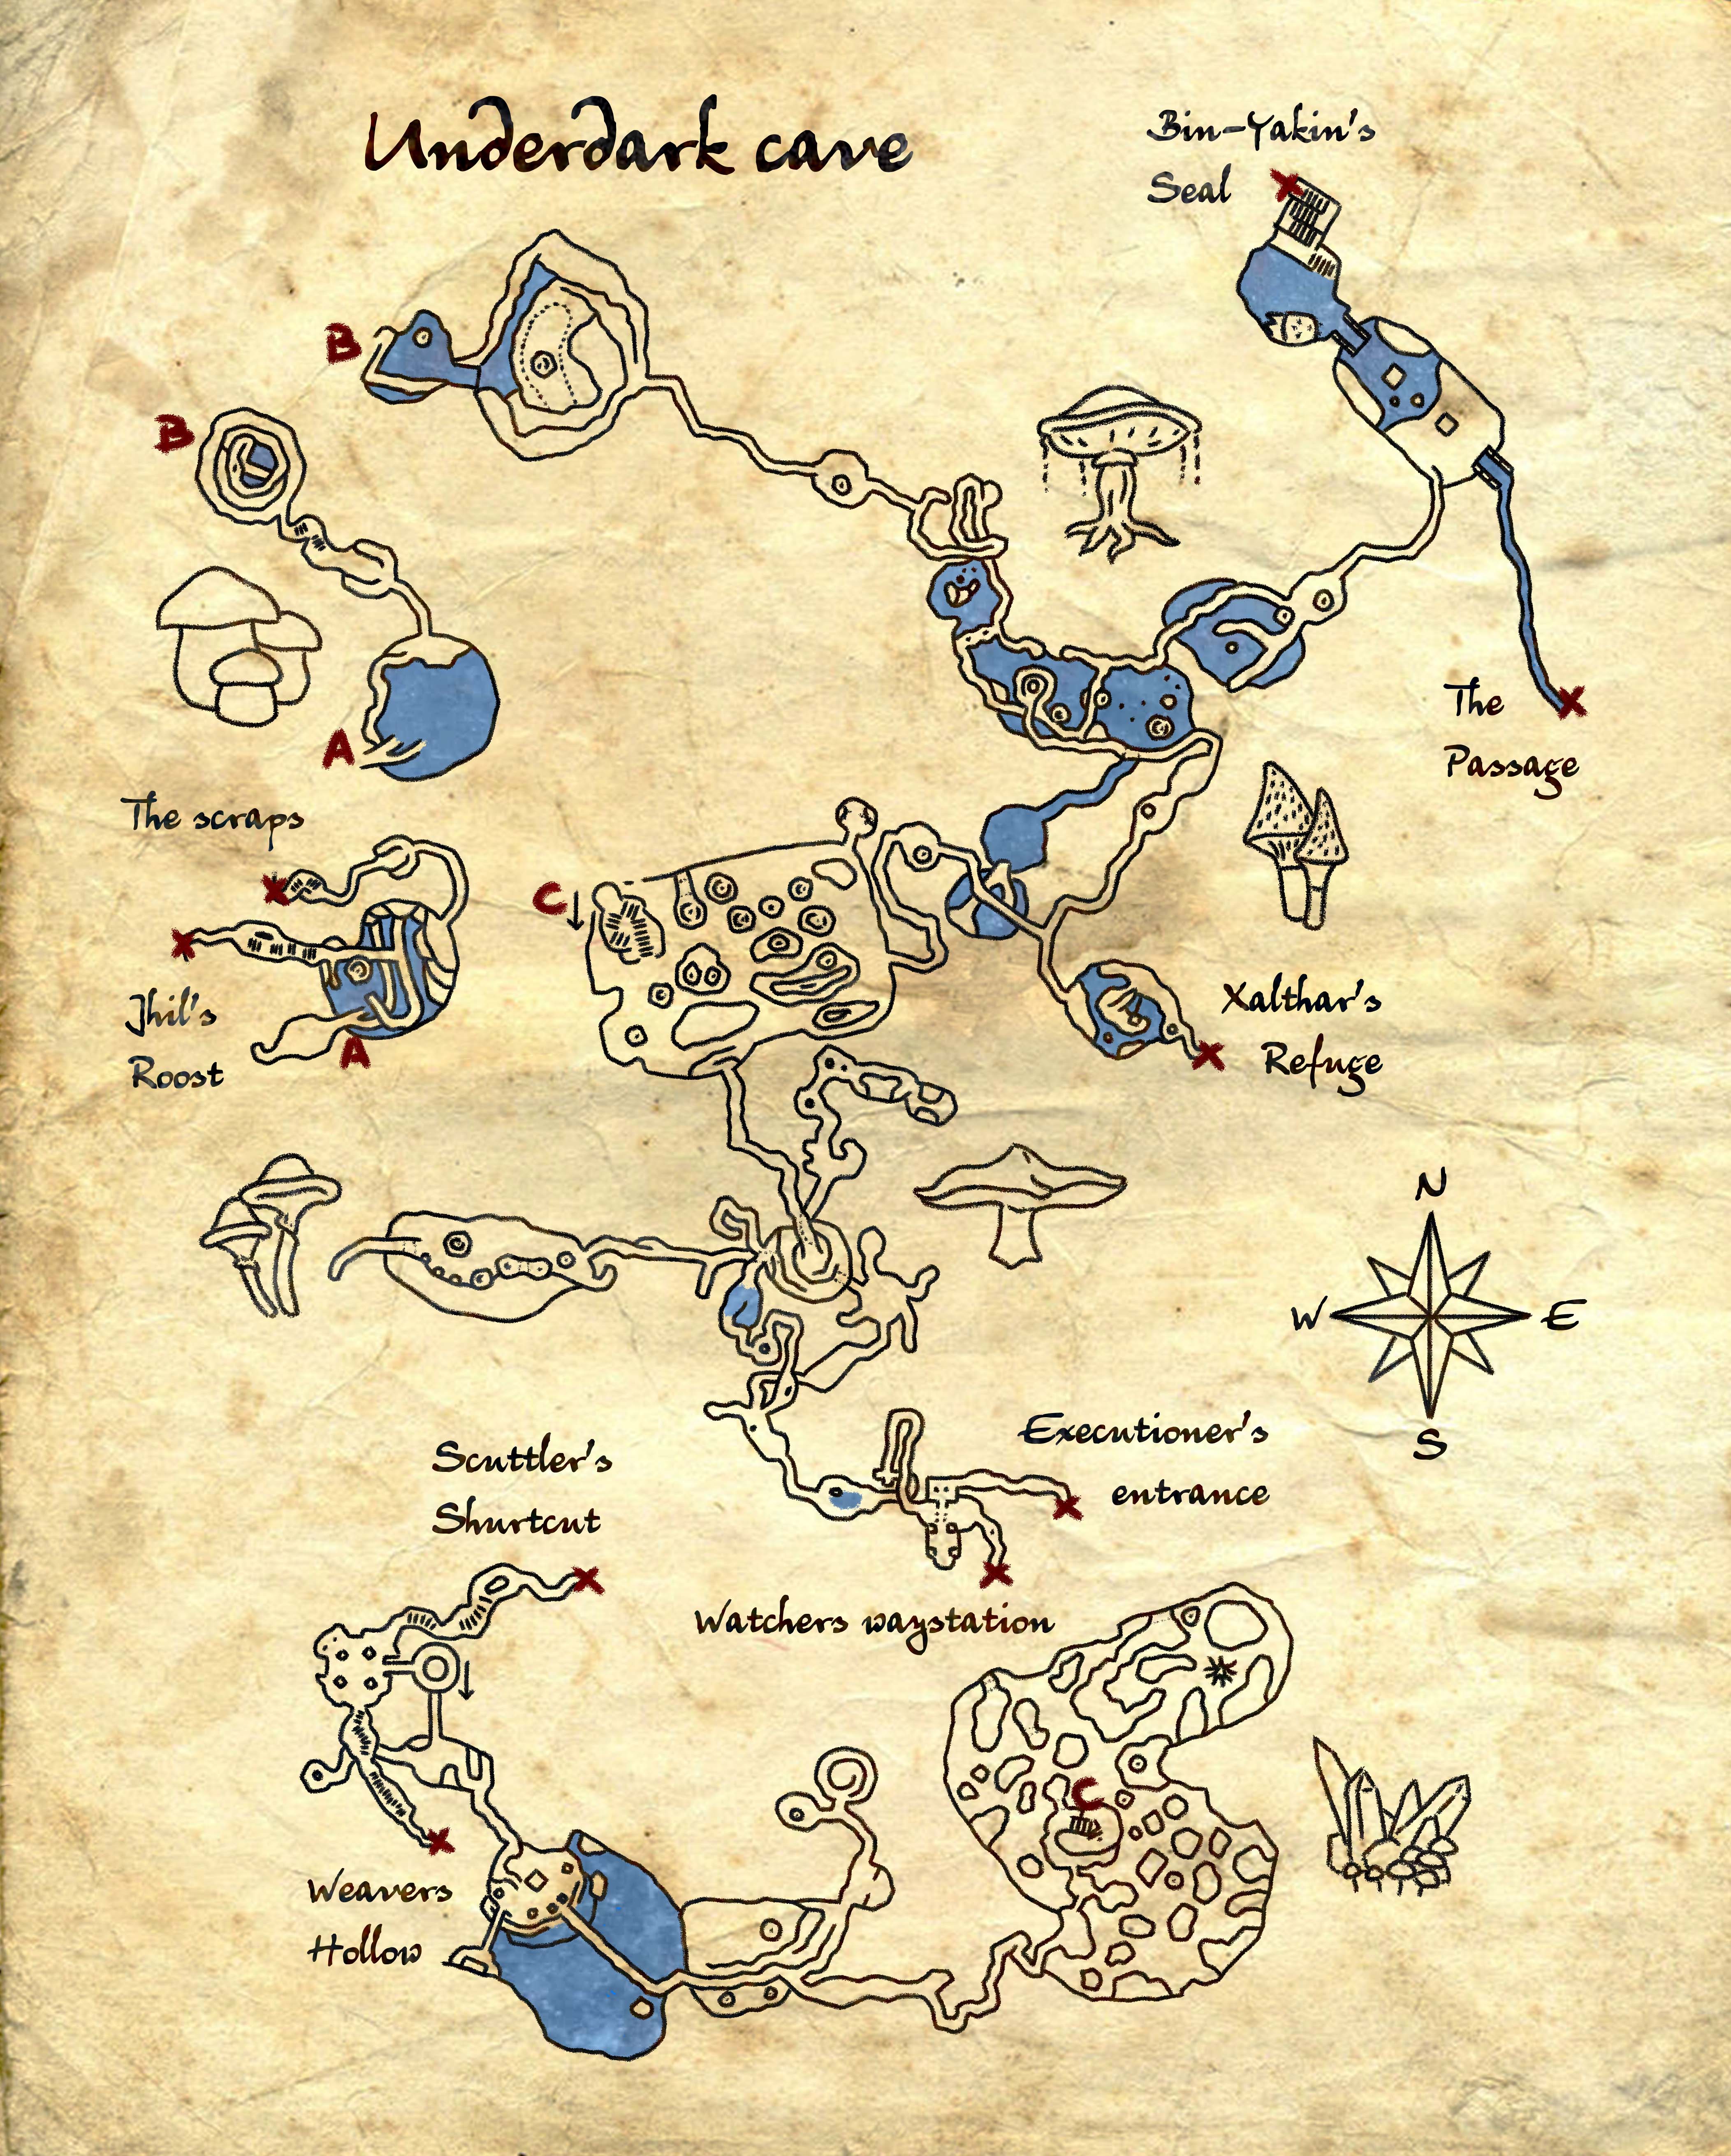 Underdark cave
Bin-Yakin's
Seal
B
B
The
Passage
A
The scraps
C
Jhil's
Roost
A
Xalthar's
Refuge
N
W
E
S
Executioner's
entrance
Scuttler's
Shurtcut
Watchers waystation
C
Weavers
Hollow